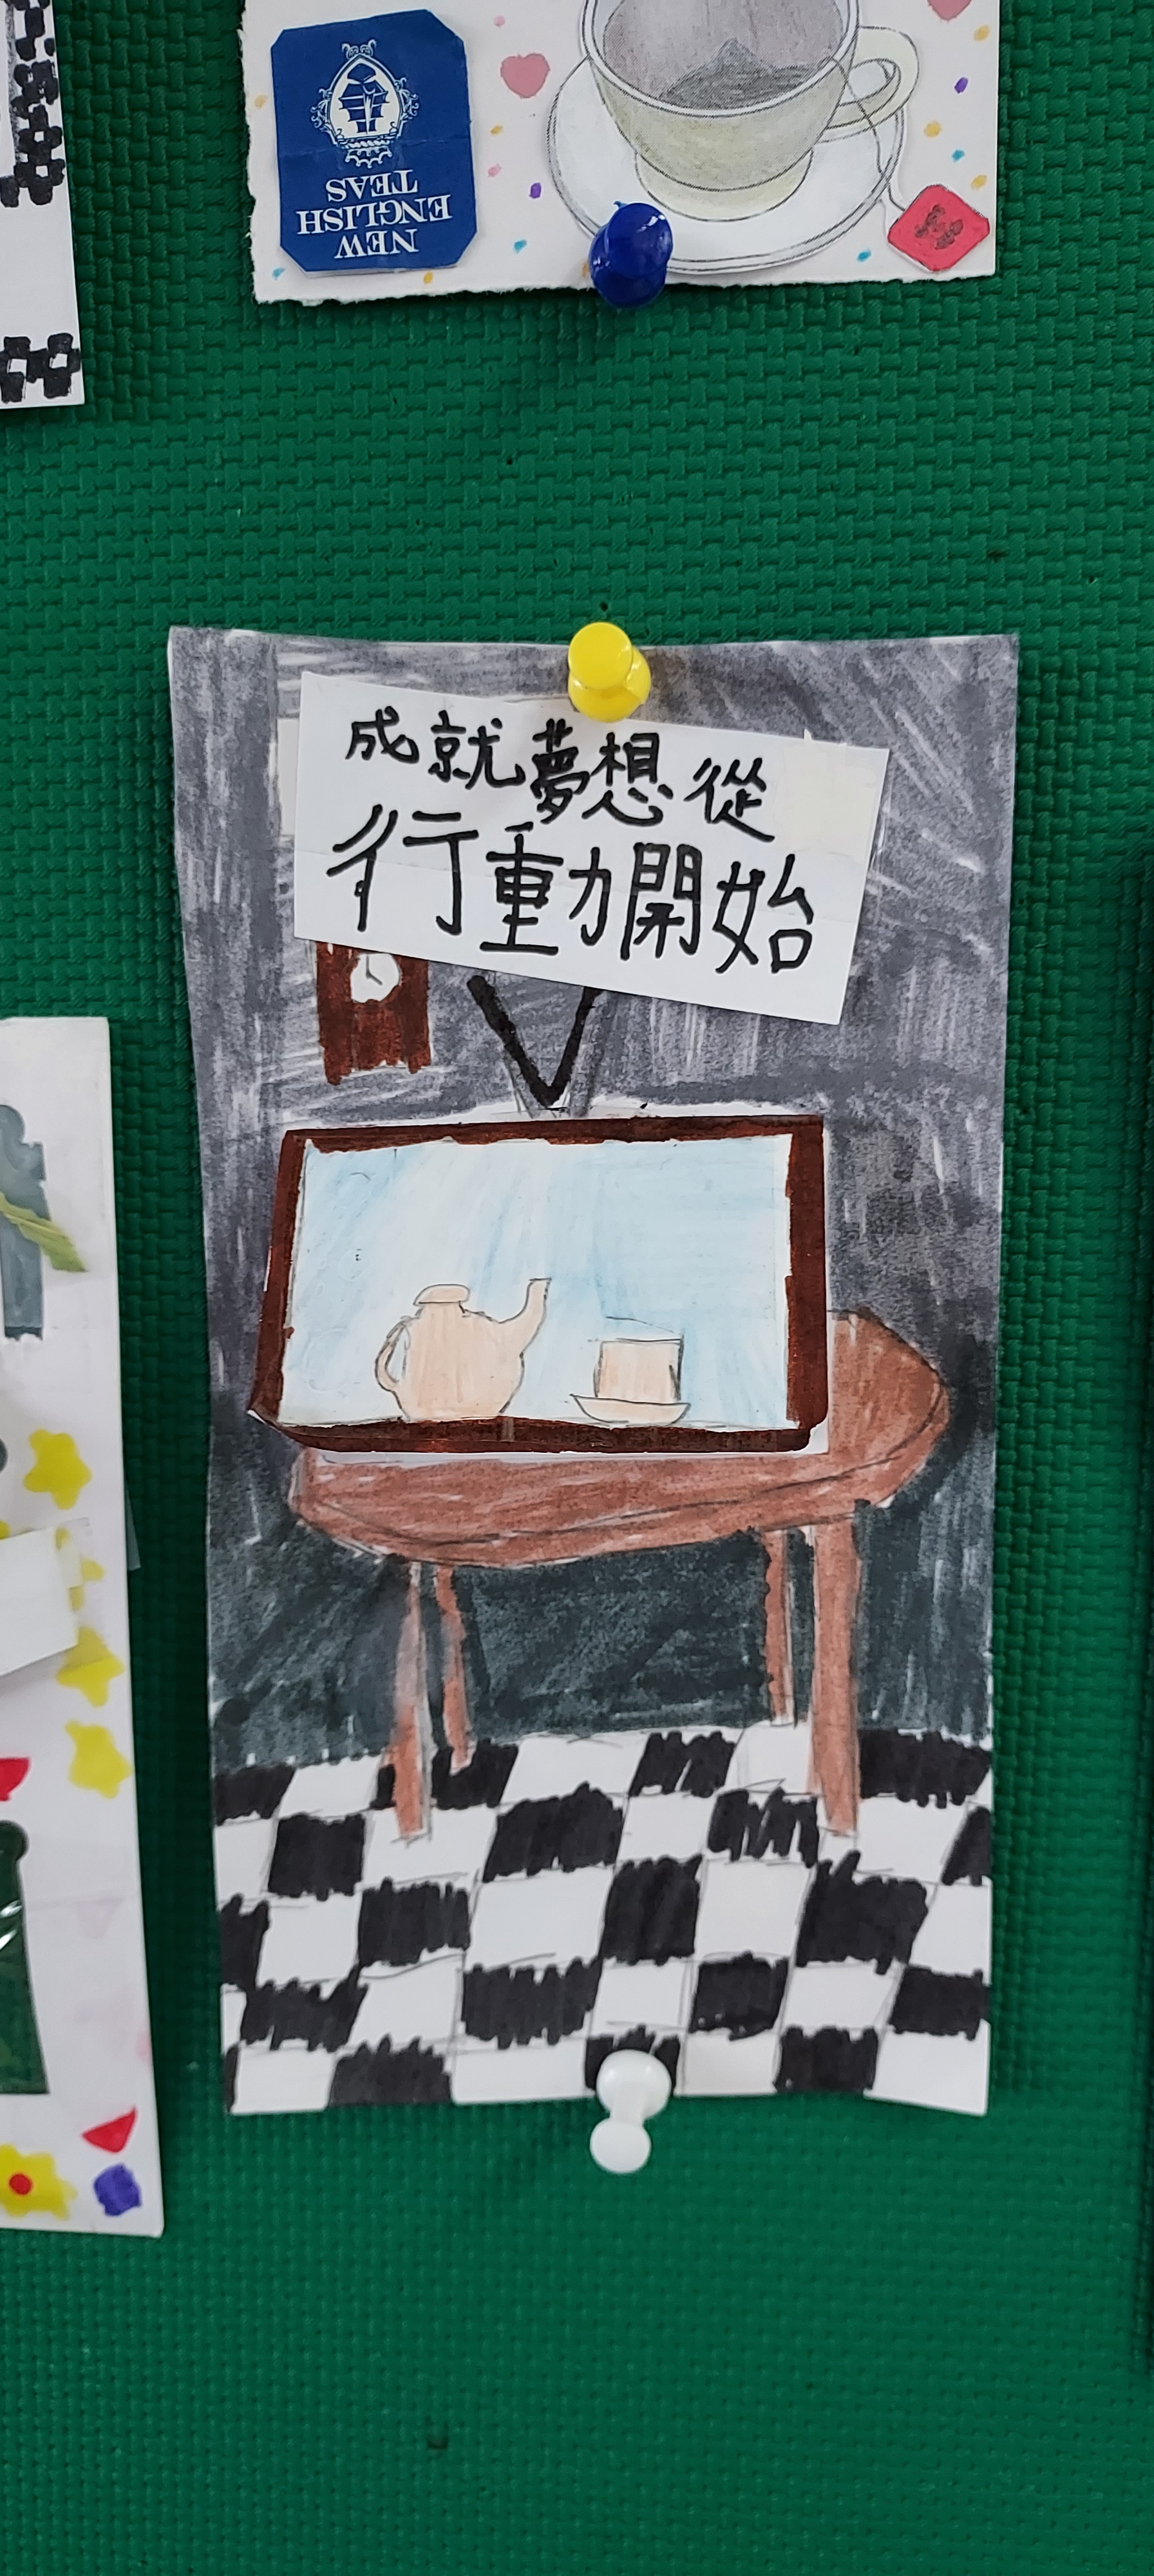 NEW
ENGLISH
TEAS
成就夢想從
行動開始